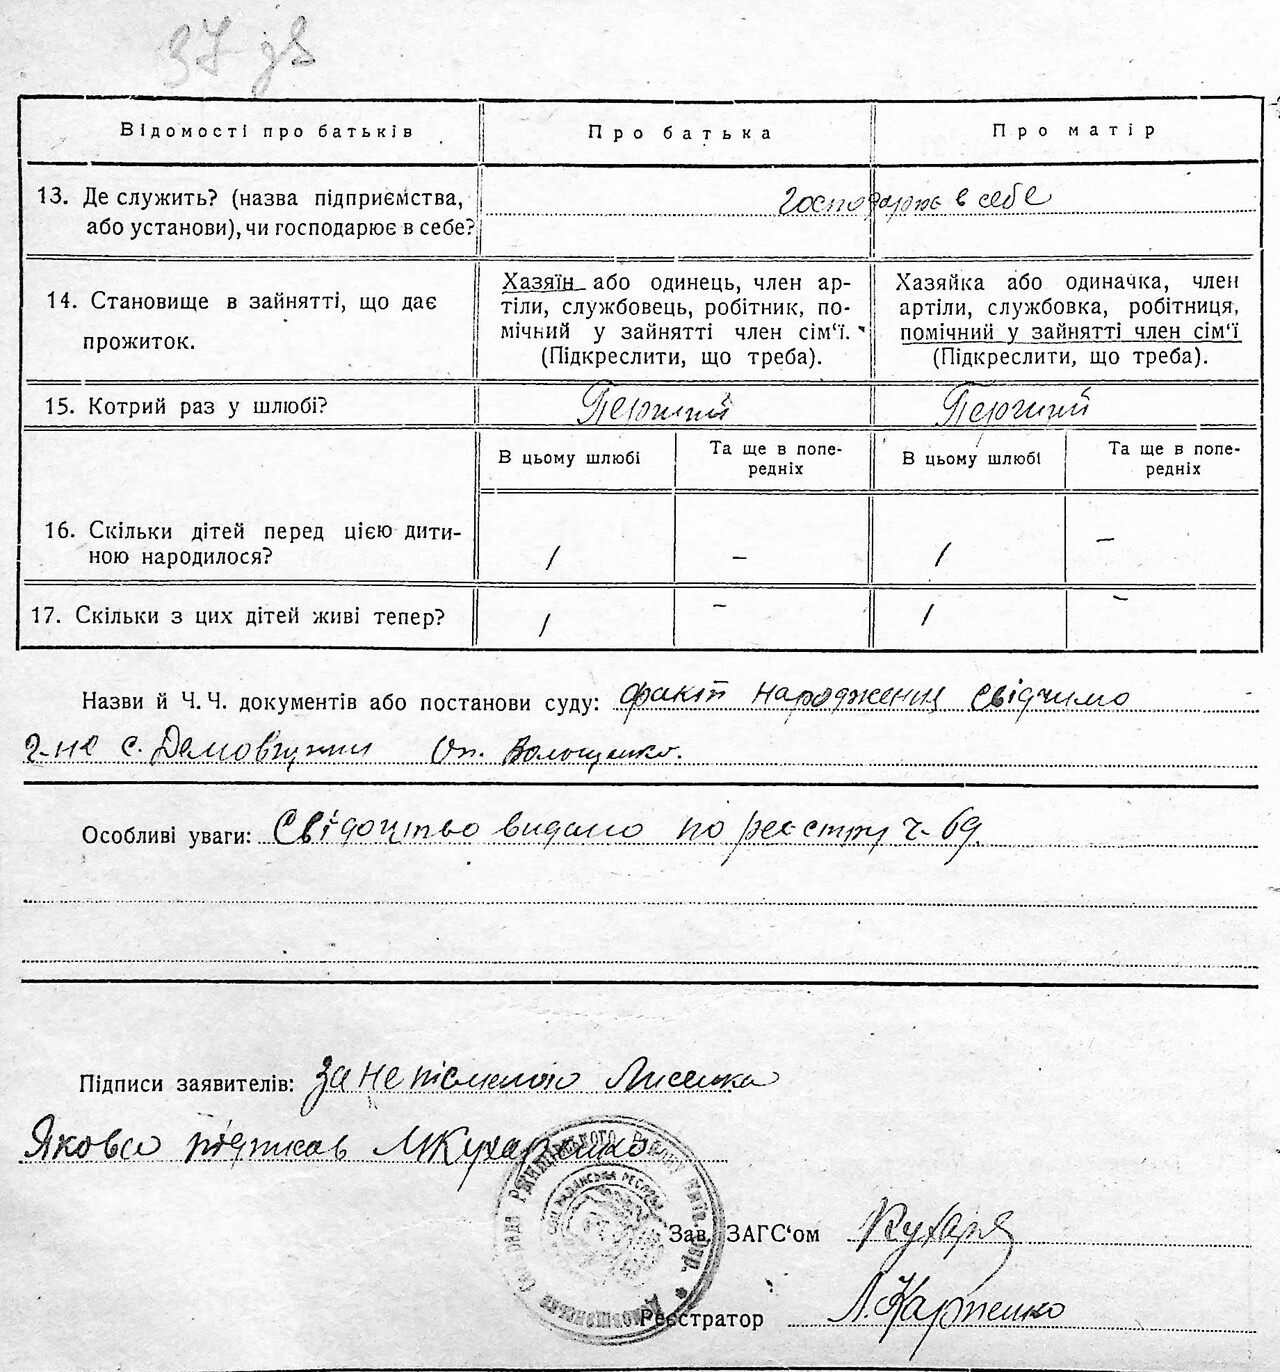 37 зв
Відомості про батьків
Про батька
Про матір
13. Де служить? (назва підприємства,
або установи), чи господарює в себе?
господарює в себе
14. Становище в зайнятті, що дає
прожиток.
Хазяїн або одинець, член ар-
тіли, службовець, робітник, по-
мічний у зайнятті член сім‘ї.
(Підкреслити, що треба).
Хазяйка або одиначка, член
артіли, службовка, робітниця,
помічний у зайнятті член сім‘ї
(Підкреслити, що треба).
15. Котрий раз у шлюбі?
Перший
Перший
В цьому шлюбі
Та ще в попе-
редніх
В цьому шлюбі
Та ще в попе-
редніх
16. Скільки дітей перед цією дити-
ною народилося?
1
–
1
–
17. Скільки з цих дітей живі тепер?
1
–
1
–
Назви й Ч. Ч. документів або постанови суду: факт народження свідчимо
г-не с. Демовщини Оп. Волощенко.
Особливі уваги: Свідоцтво видано по реєстру ч-69.
Підписи заявителів: За неписьменого Лисенка
Якова підписав МКухаренко
Ржищівського району Київ. Окр.
Зав. ЗАГС‘ом Кухаря
Реєстратор Л. Карпенко